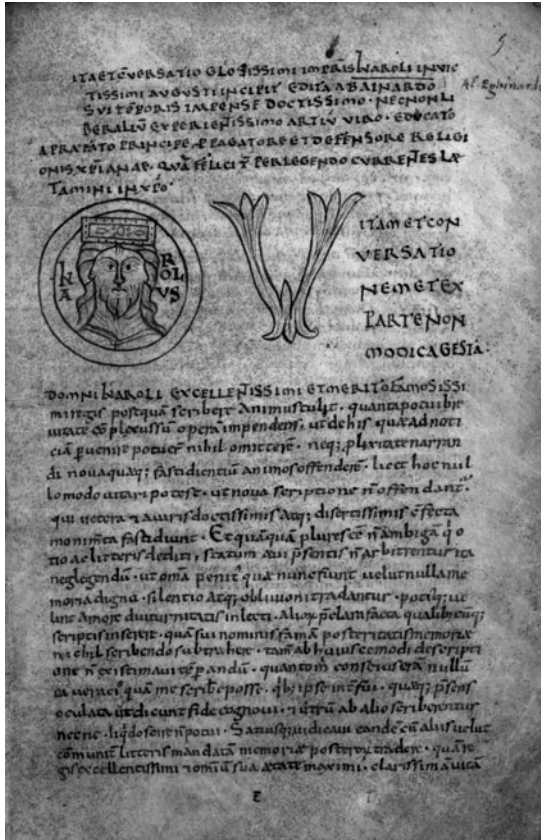 5
ITA ET CŌVERSATIO GLOSISSIMI IMPRĪS KAROLI INVIC
TISSIMI AUGUSTI INCIPIT EDITA AB AINARDO
SUI TEMPORIS IMPENSE DOCTISSIMO. NECNON LI
BERALIŪ EXPERIENTISSIMO ARTIŪ VIRO. EDUCATO
PRINCIPE PPAGATORE ET DEFENSORE RELIGI
ONIS XP̄IANAE. QUĀ FELICIT̄ PERLEGENDO CURRENTES LAE
TAMINI IN XPO.
KAROLUS
VITAM ET CON
VERSATIO
NEM ET EX
PARTE NON
MODICA GESTĀ.
DOMNI KAROLI EXCELLENTISSIMI ET MERITO FAMOSISSI
mi regis postquā scribere animus tulit. quanta potui bre
vitate cōplexus sū operā impendens. ut de his quae ad noti
ciā pvenire potuer nihil omitterē. neq; plixitate narran
di nova quaeq; fastidientiū animos offenderē. si
lo modo vitari potest. ut nova scriptione n̄ offendant̄.
qui vetera et a viris doctissimis atq; disertissimis cōfecta
monimta fastidiunt. Et quāquā plures eē n̄ ambigā q̄ o
tio ac litteris dediti. statum aevi psentis n̄ arbitrentur ita
neglegendū. ut omā penit quae nunc fiunt velut nulla me
moria digna. silentio atq; oblivioni tradantur. potiq; ve
lint amore diuturnitatis inlecti. alior pclara facta qualibuscūq;
scriptis inserere. quā sui nominis famā posteritatis memoriae
nichil scribendo subtrahere. tam ab huiuscemodi descripti
one n̄ existimavi tēperandū. quando m conscius erā nullū
ea veraci quā me scribe posse. qb; ipse intfui. quaeq; psens
oculata ut dicunt fide cognovi. et utrū ab alio scriberentur
necne. liqdo scire n̄ potui. Satiusq; iudicavi eandē cū aliis velut
cōmunit litteris mandatā memoriae posteror tradere. quā re
gis excellentissimi et omiū sua aetate maximi. clarissimā vitā
E